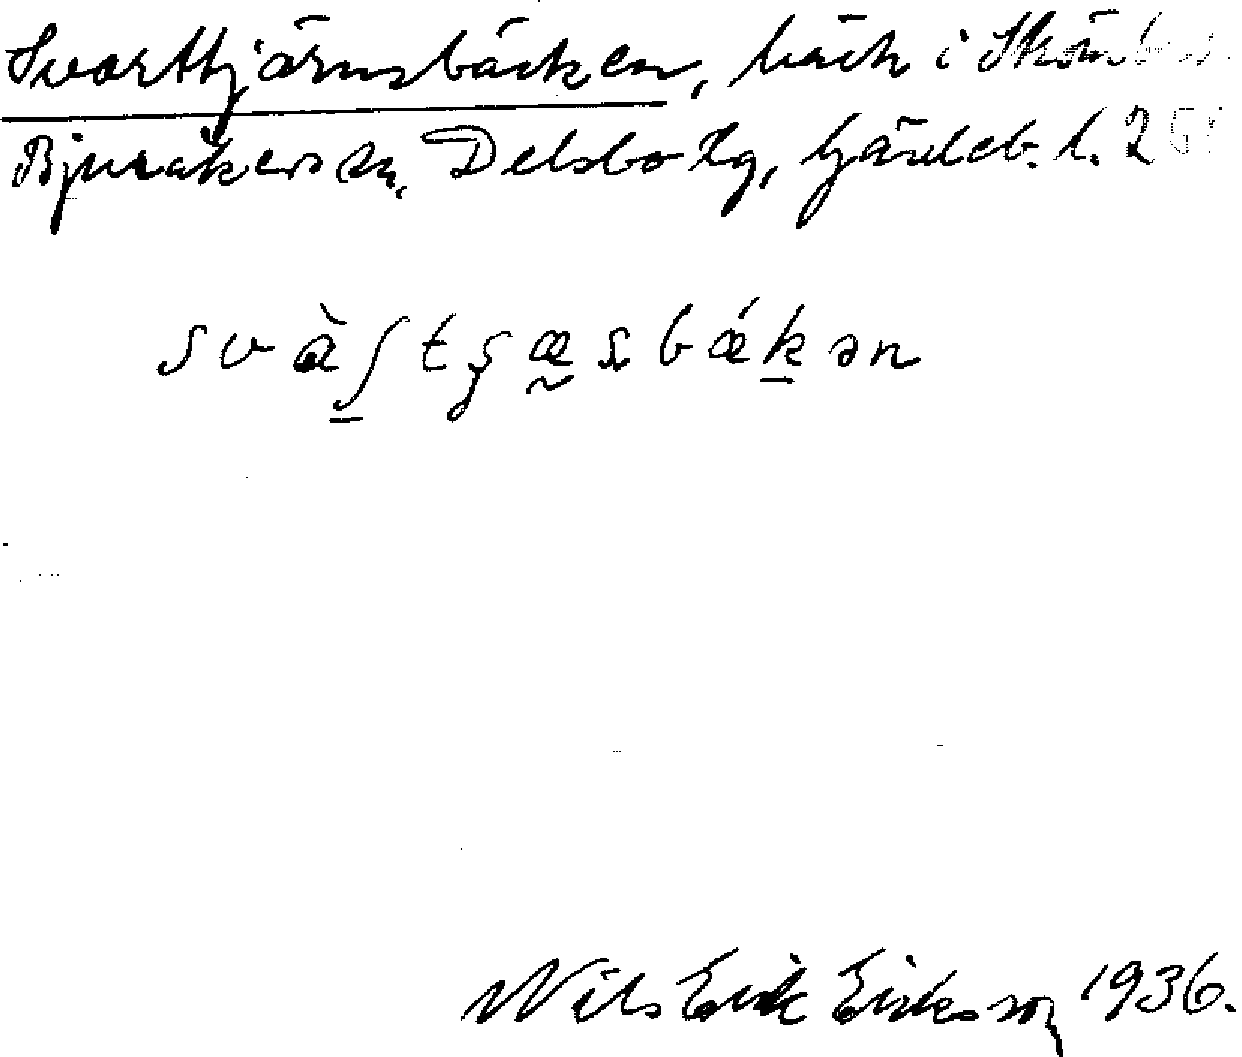 Svarttjärnsbäcken, bäck i
Bjuråkers sn, Delsbo tg, Gävleb. l.
svàʃtʂæsbǽkən
Nils Erik Eriksson 1936.